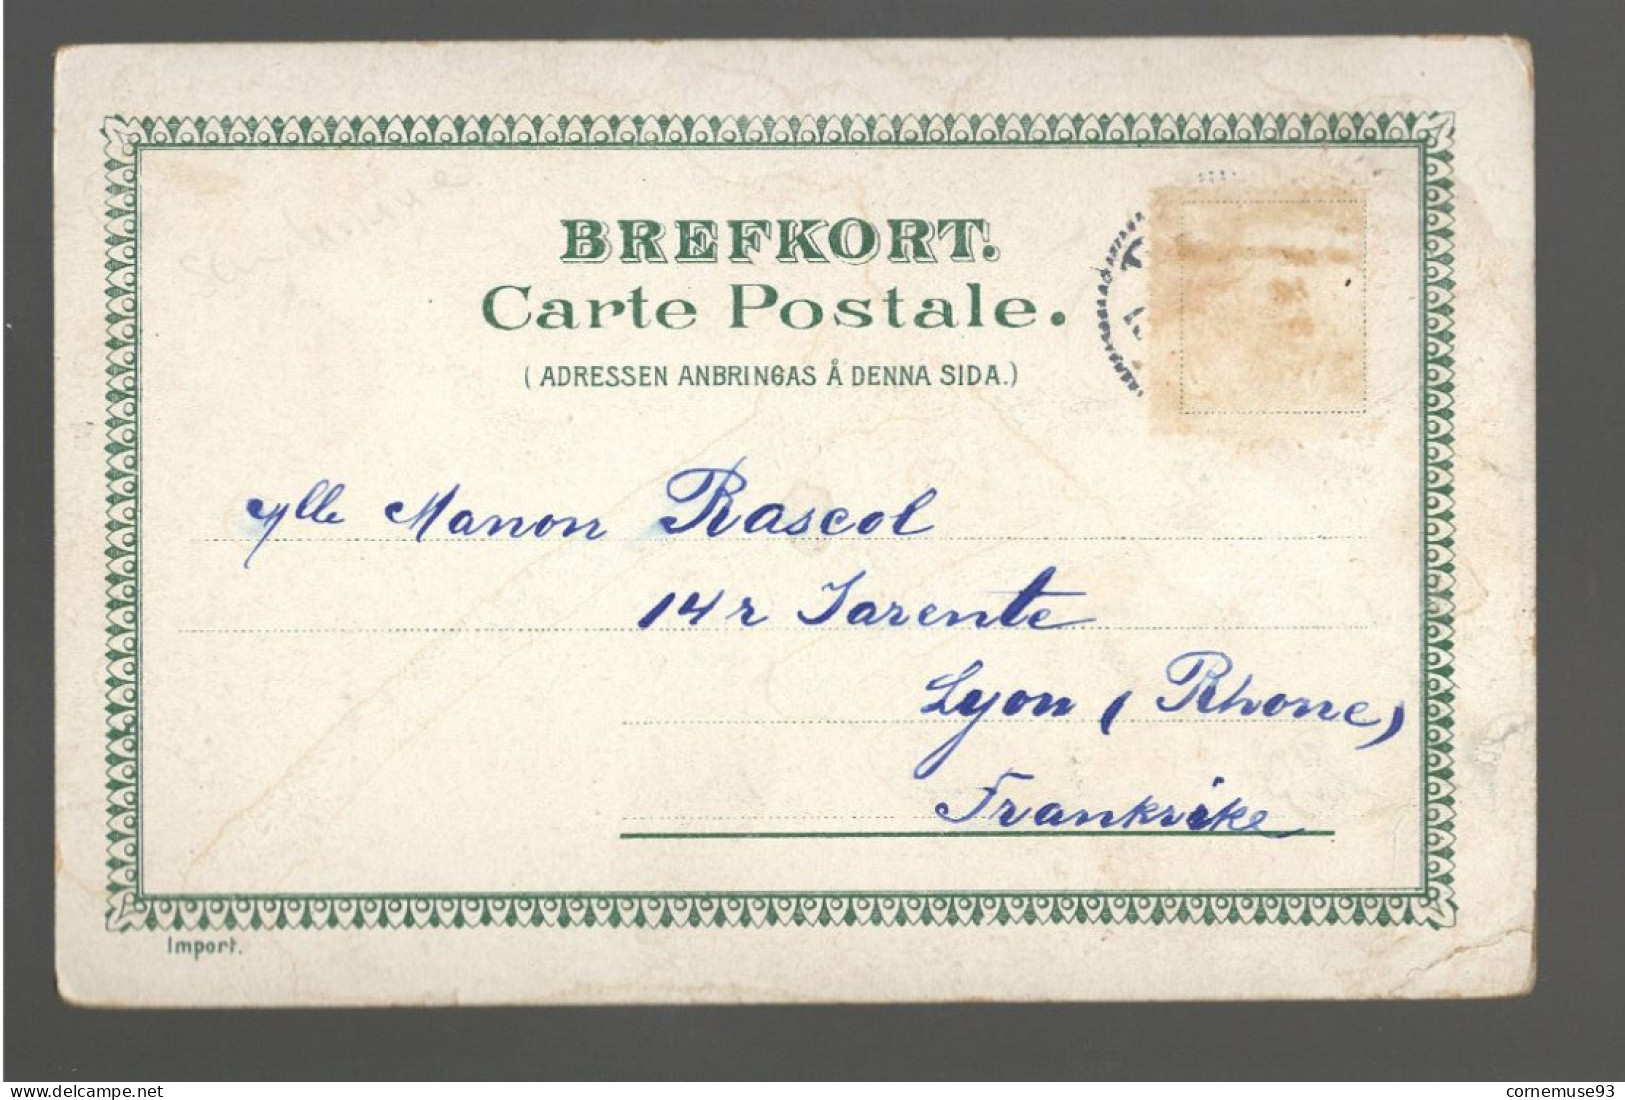 BREFKORT.
Carte Postale.
(ADRESSEN ANBRINGAS Å DENNA SIDA.)
Mlle Manon Rascol
14 r Tarente
Lyon (Rhone)
Frankrike
Import.
delcampe.net
cornemuse93